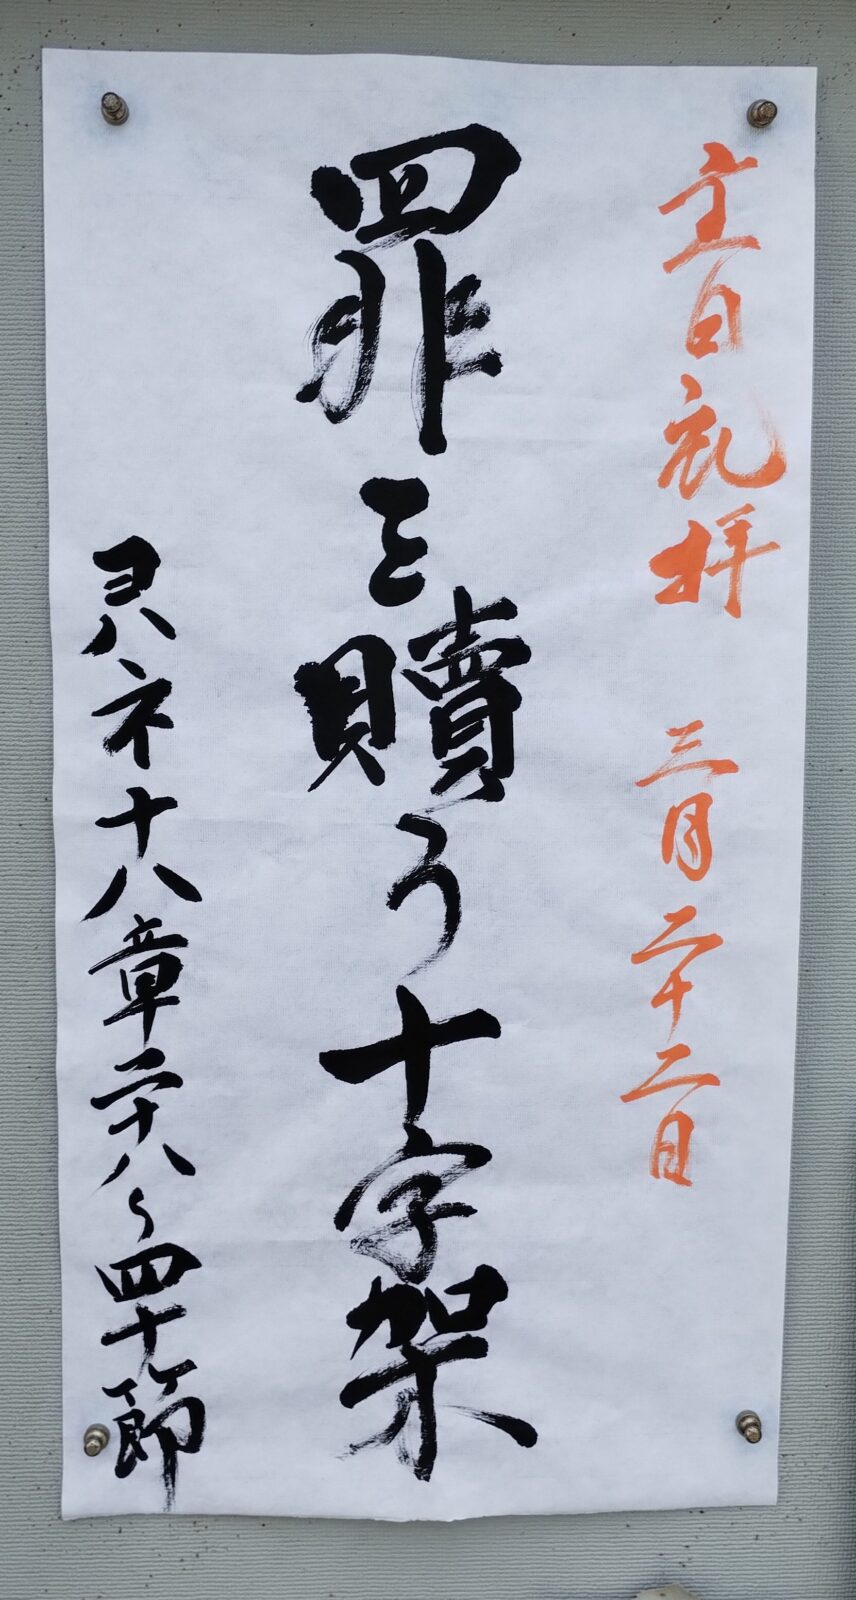 主日礼拝 三月二十二日
罪を贖う十字架
ヨハネ十八章二十八〜四十節